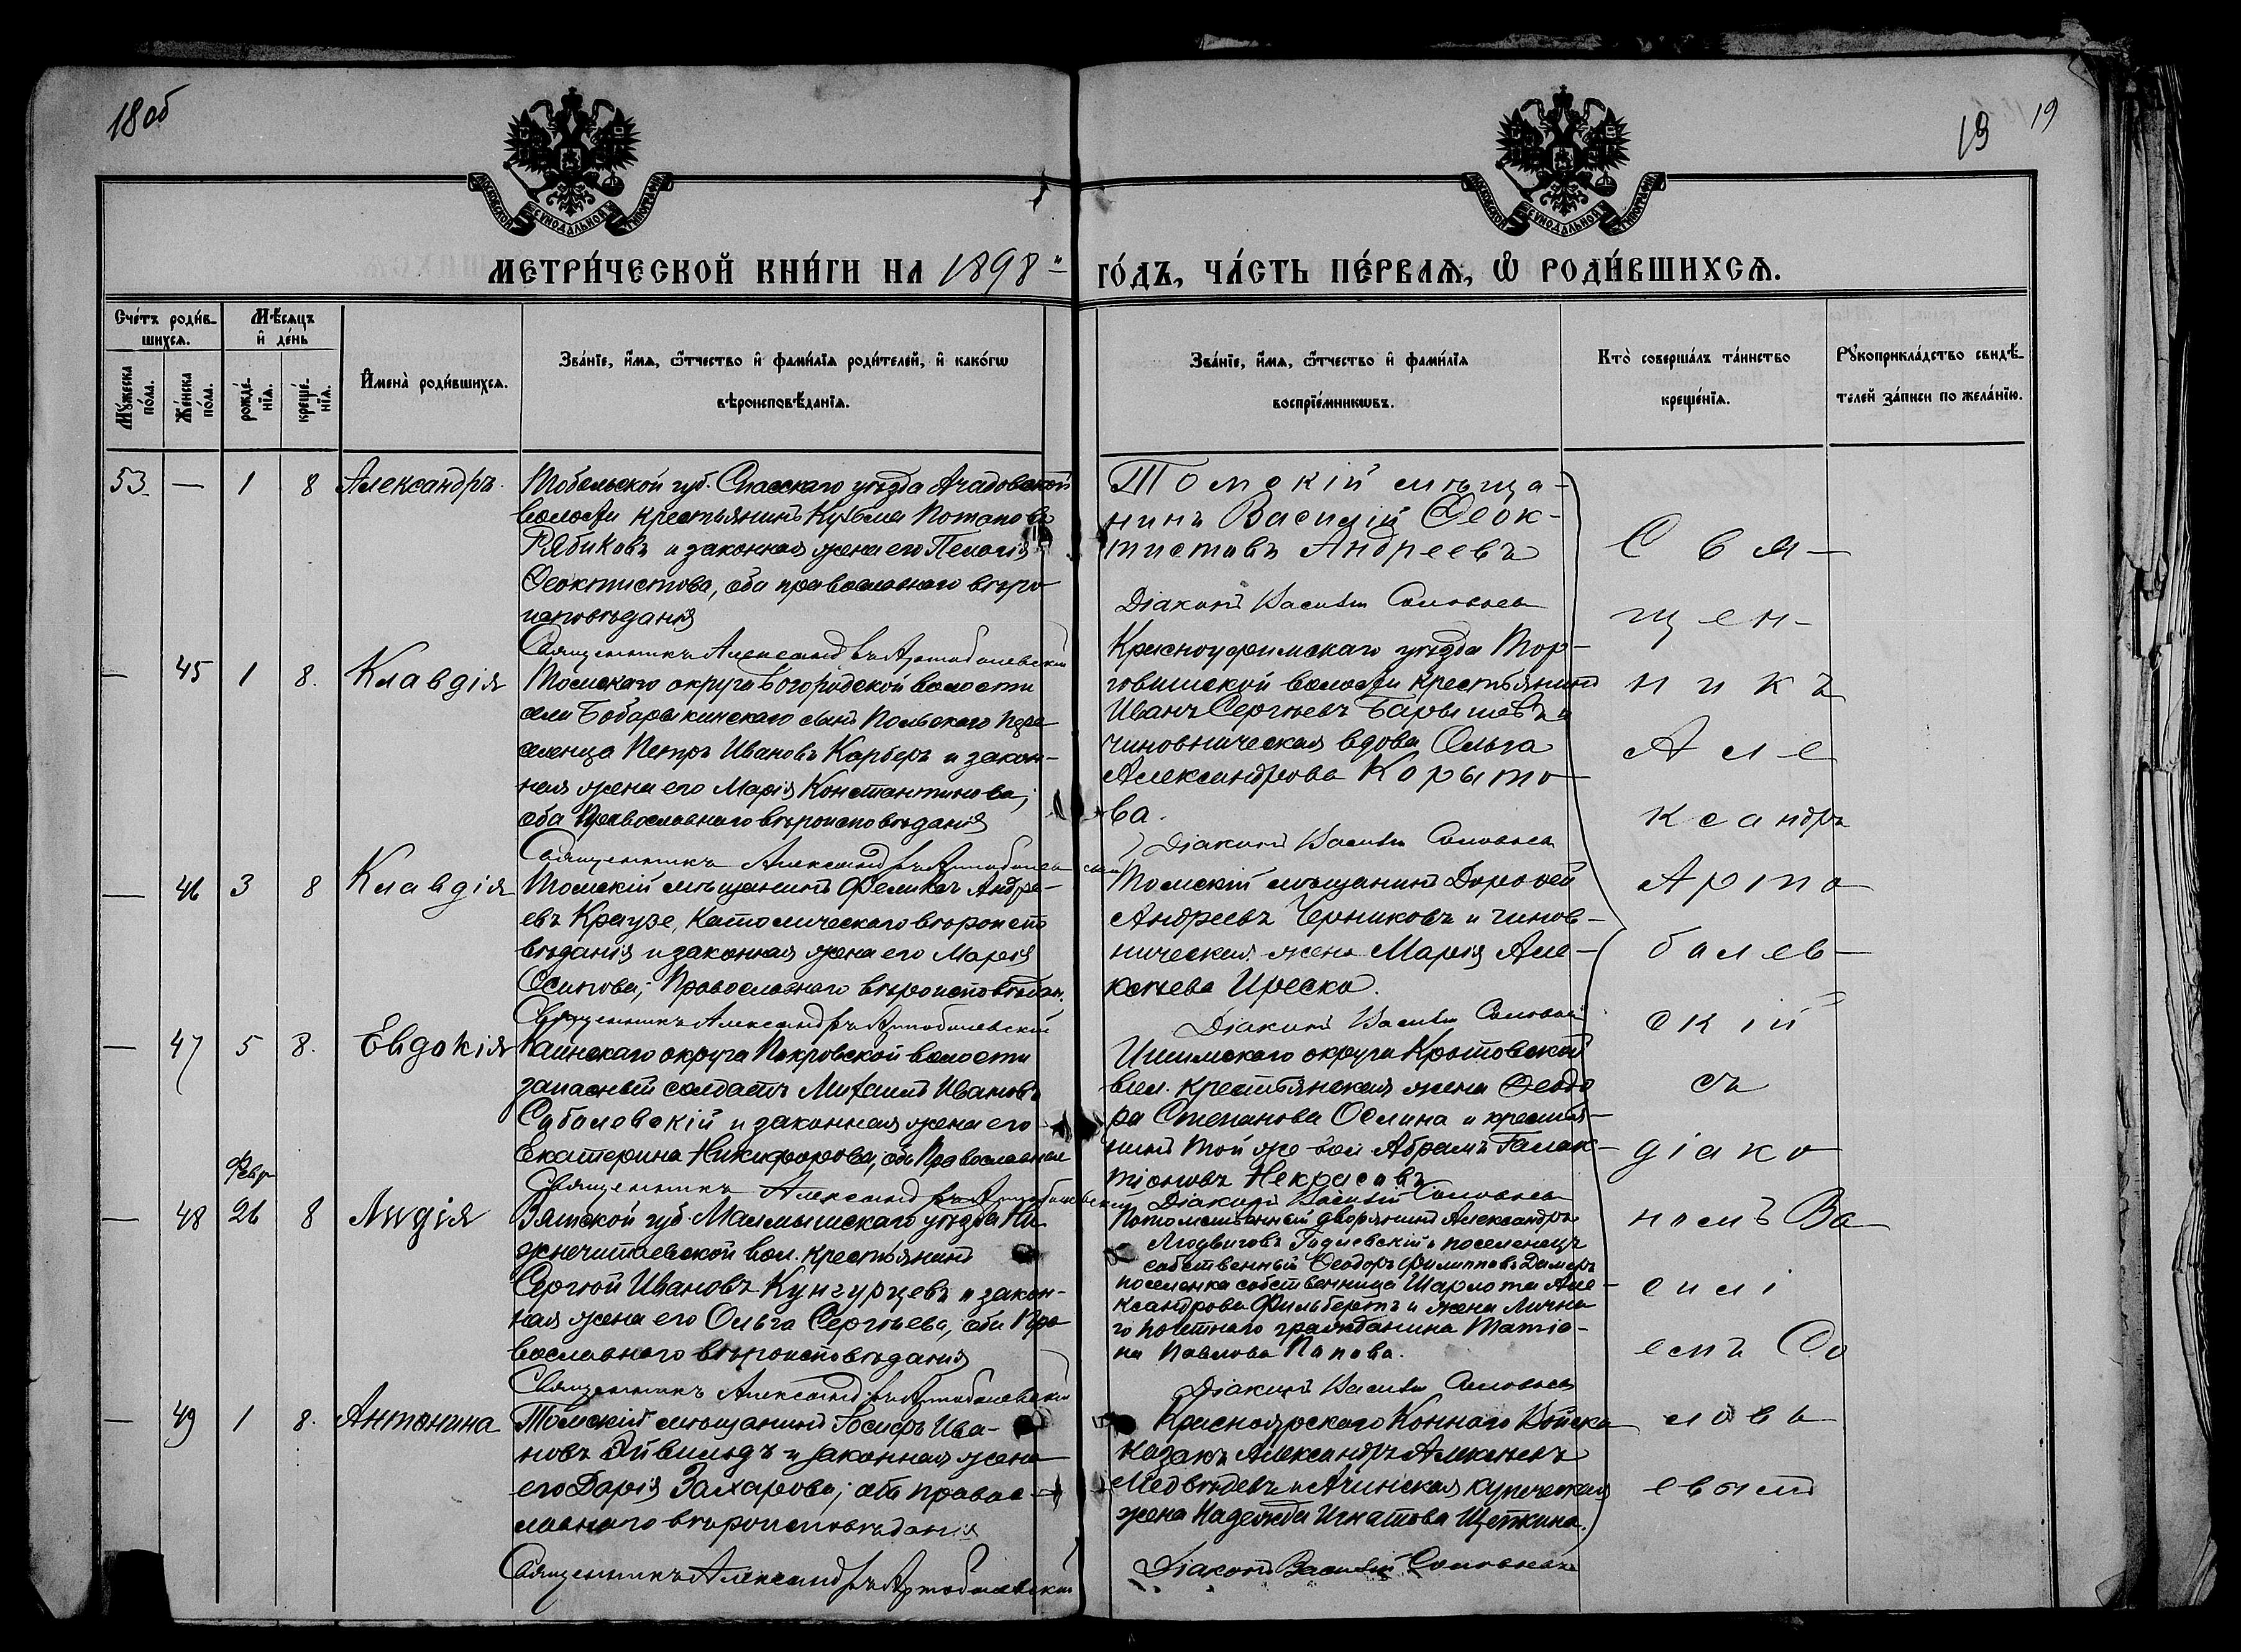 18 об
19
19
МОСКОВСКОЙ СѴНОДАЛЬНОЙ ТИПОГРАФІИ
МОСКОВСКОЙ СѴНОДАЛЬНОЙ ТИПОГРАФІИ
МЕТРИ́ЧЕСКОЙ КНИ́ГИ НА 1898 й
ГО́ДЪ, ЧА́СТЬ ПЕ́РВАѦ, Ѡ РОДИ́ВШИХСѦ.
Сче́тъ роди́в-
шихсѧ.
Мꙋ́жеска по́ла.
Же́нска по́ла.
Мѣ́сѧцъ
и҆ де́нь
рожде́-
нїѧ.
креще́-
нїѧ.
И҆мена̀ роди́вшихсѧ.
Зва́нїе, и҆́мѧ, ѻ҆́тчество и҆ фами́лїѧ роди́телей, и҆ како́гѡ
вѣроисповѣ́данїѧ.
Зва́нїе, и҆́мѧ, ѻ҆́тчество и҆ фами́лїѧ
воспрїе́мникѡвъ.
Кто̀ соверша́лъ та́инство
креще́нїѧ.
Рꙋкоприкла́дство свидѣ́-
телей за́писи по жела́нїю.
53 — 1 8 Александръ.
Тобольской губ. Спасскаго уѣзда Ачадовской
волости крестьянинъ Кузьма Потаповъ
Рябиковъ и законная жена его Пелагія
Ѳеоктистова, оба православнаго вѣро-
исповѣданія
Священникъ Александръ Артоболевскій
Томскій мѣща-
нинъ Василій Ѳеок-
тистовъ Андреевъ
Діаконъ Василій Соловьевъ
— 45 1 8. Клавдія
Томскаго округа Богородской волости
села Бобарыкинскаго сынъ Польскаго пере-
селенца Петръ Ивановъ Карберъ и закон-
ная жена его Марія Константинова,
оба Православнаго вѣроисповѣданія
Священникъ Александръ Артоболевскій
Красноуфимскаго уѣзда Тор-
говишской волости крестьянинъ
Иванъ Сергѣевъ Барышевъ и
чиновническая вдова Ольга
Александрова Корыто-
ва.
Діаконъ Василій Соловьевъ
— 46 3 8 Клавдія
Томскій мѣщанинъ Феликсъ Андре-
евъ Краузе, Католическаго вѣроиспо-
вѣданія и законная жена его Марія
Осипова, Православнаго вѣроисповѣдан.
Священникъ Александръ Артоболевскій
Томскій мѣщанинъ Дороѳей
Андреевъ Черниковъ и чинов-
ническая жена Марія Але-
ксѣева
Діаконъ Василій Соловьевъ
— 47 5 8. Евдокія
Каинскаго округа Покровской волости
запасный солдатъ Михаилъ Ивановъ
и законная жена его
Екатерина Никифорова, оба Православные
Священникъ Александръ Артоболевскій
Ишимскаго округа Кротовской
вол. крестьянская жена Ѳеодо-
ра Степанова Ослина и крестья-
нинъ той же вол. Абрамъ Галак-
тіоновъ Некрасовъ
Діаконъ Василій Соловьевъ
Февр.
— 48 26 8 Лидія
Вятской губ. Малмышскаго уѣзда
вол. крестьянинъ
Сергѣй Ивановъ Кунгурцевъ и закон-
ная жена его Ольга Сергѣева, оба Пра-
вославнаго вѣроисповѣданія
Священникъ Александръ Артоболевскій
Потомственный дворянинъ Александръ
Людвиговъ поселенецъ
собственный Ѳеодоръ Филипповъ
поселенка собственница Шарлота Але-
ксандрова Фильбертъ и жена Лична-
го почетнаго гражданина Татіа-
на Павлова Попова.
Діаконъ Василій Соловьевъ
— 49 1 8. Антонина
Томскій мѣщанинъ Іосифъ Ива-
новъ Эйвильдъ и законная жена
его Дарія Захарова, оба право-
славнаго вѣроисповѣданія
Священникъ Александръ Артоболевскій
Красноярскаго Коннаго Войска
казакъ Александръ Алексѣевъ
Медвѣдевъ и Ачинская купеческая
жена Надежда Игнатова Щепкина.
Діаконъ Василій Соловьевъ
Свя-
щен-
никъ
Але
ксандръ
Арто-
балев-
скій
съ
діако-
номъ Ва-
силі-
емъ Со
ловь-
евымъ